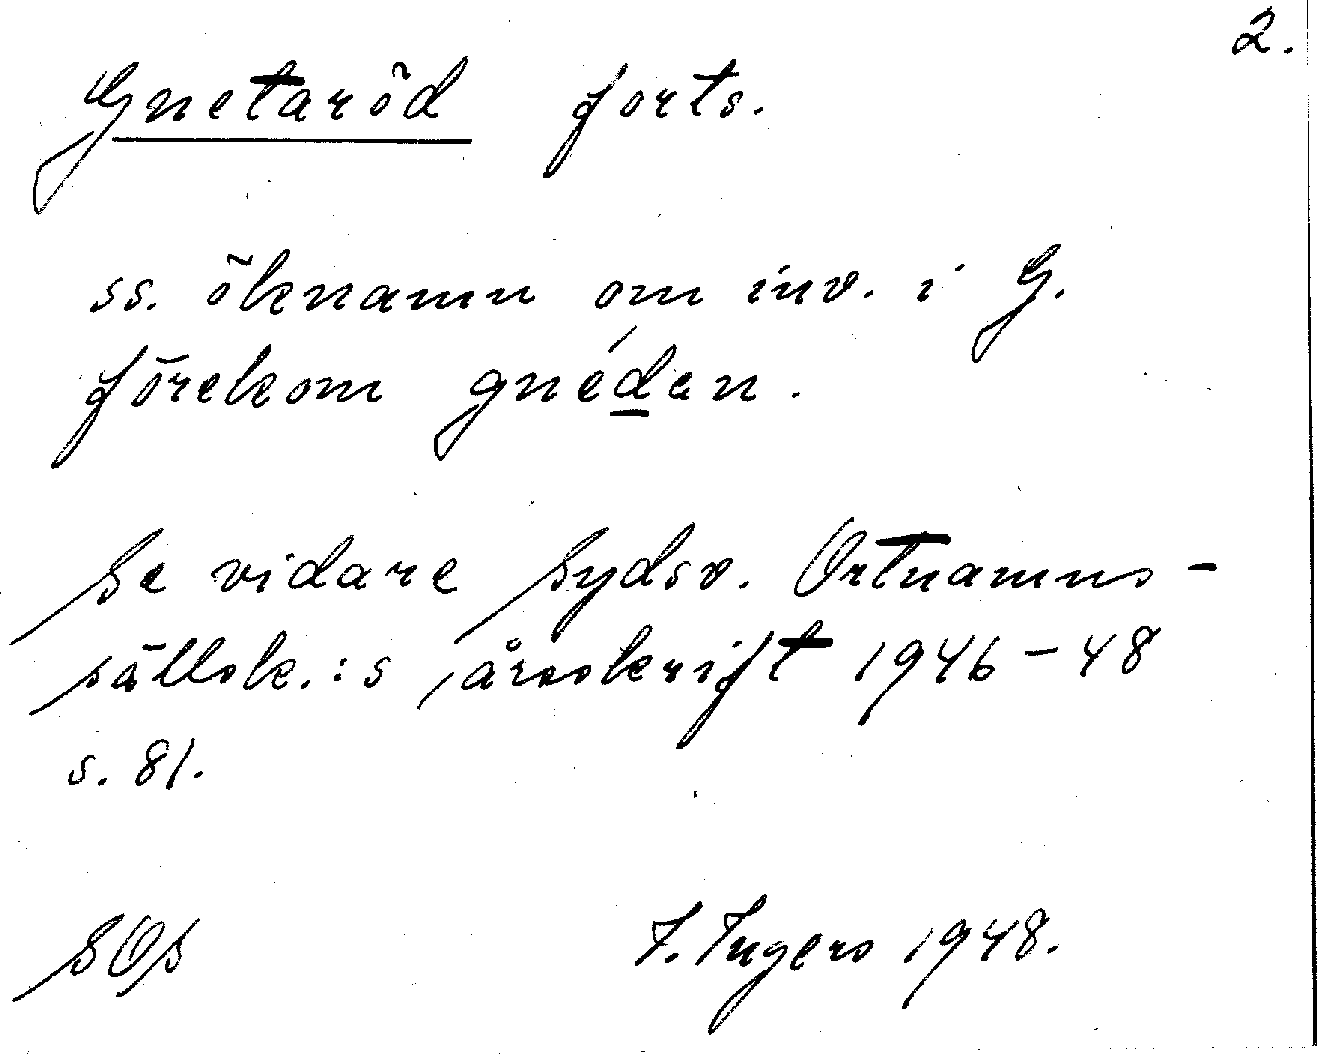 2.
Gnetaröd forts.
ss. öknamn om inv. i G.
förekom gnédan.
Se vidare Sydsv. Ortnamns-
sällsk.:s årsskrift 1946-48
s. 81.
SOS I. Ingers 1948.